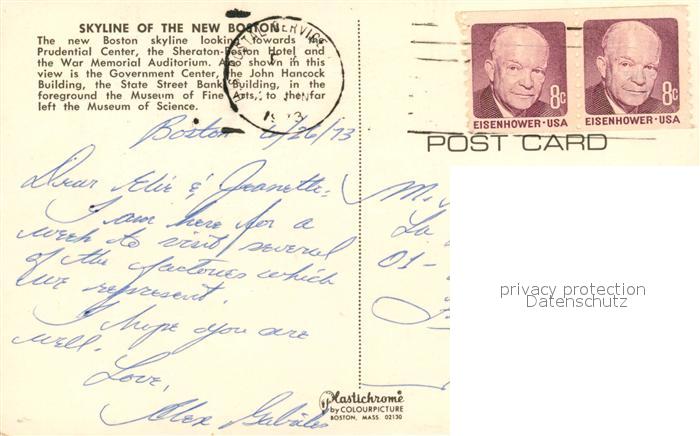 SKYLINE OF THE NEW BOSTON
The new Boston skyline looking towards the
Prudential Center, the Sheraton-Boston Hotel and
the War Memorial Auditorium. Also shown in this
view is the Government Center, the John Hancock
Building, the State Street Bank Building, in
the foreground the Museum of Fine Arts, to the far
left the Museum of Science.
8c
EISENHOWER·USA
8c
EISENHOWER·USA
POST CARD
SERVICE
1973
Boston 6/26/73
Dear Elie & Jeanette:
I am here for a
week to visit several
of the factories which
we represent.
I hope you are
well.
Love,
Alex
M.
La
01-
privacy protection
Datenschutz
Plastichrome
by COLOURPICTURE
BOSTON, MASS. 02130